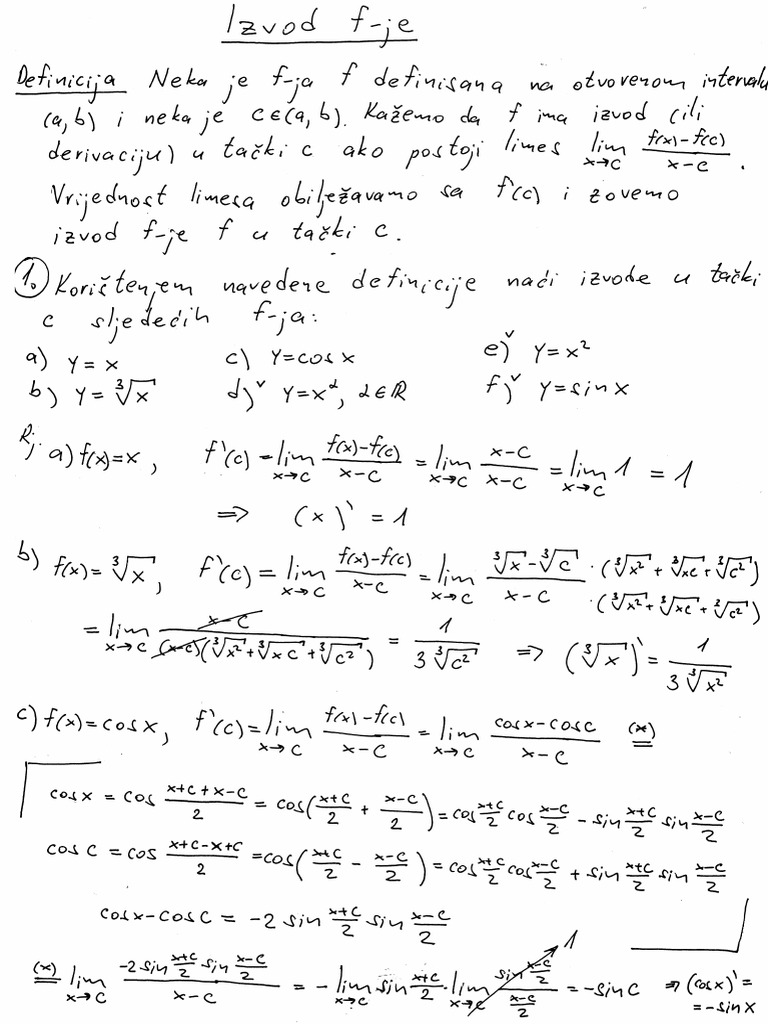 Izvod f-je
Definicija Neka je f-ja f definisana na otvorenom intervalu
(a,b) i neka je c∈(a,b). Kažemo da f ima izvod (ili
derivaciju) u tački c ako postoji limes lim_{x→c} (f(x)-f(c))/(x-c).
Vrijednost limesa obilježavamo sa f'(c) i zovemo
izvod f-je f u tački c.
1. Korištenjem navedene definicije naći izvode u tački
c sljedećih f-ja:
a) y=x c) y=cos x e)ˇ y=x²
b) y=∛x d)ˇ y=x^α, α∈R f)ˇ y=sin x
Rj. a) f(x)=x, f'(c)=lim_{x→c} (f(x)-f(c))/(x-c) = lim_{x→c} (x-c)/(x-c) = lim_{x→c} 1 = 1
⇒ (x)' = 1
b) f(x)=∛x, f'(c)=lim_{x→c} (f(x)-f(c))/(x-c) = lim_{x→c} (∛x-∛c)/(x-c) · (∛x²+∛xc+∛c²)/(∛x²+∛xc+∛c²)
= lim_{x→c} (x-c)/((x-c)(∛x²+∛xc+∛c²)) = 1/(3∛c²) ⇒ (∛x)' = 1/(3∛x²)
c) f(x)=cos x, f'(c)=lim_{x→c} (f(x)-f(c))/(x-c) = lim_{x→c} (cos x-cos c)/(x-c) (*)=
cos x = cos (x+c+x-c)/2 = cos((x+c)/2 + (x-c)/2) = cos (x+c)/2 cos (x-c)/2 - sin (x+c)/2 sin (x-c)/2
cos c = cos (x+c-x+c)/2 = cos((x+c)/2 - (x-c)/2) = cos (x+c)/2 cos (x-c)/2 + sin (x+c)/2 sin (x-c)/2
cos x-cos c = -2 sin (x+c)/2 sin (x-c)/2
(*)= lim_{x→c} (-2 sin (x+c)/2 sin (x-c)/2)/(x-c) = -lim_{x→c} sin (x+c)/2 · lim_{x→c} (sin (x-c)/2)/((x-c)/2) → 1 = -sin c ⇒ (cos x)' =
= -sin x